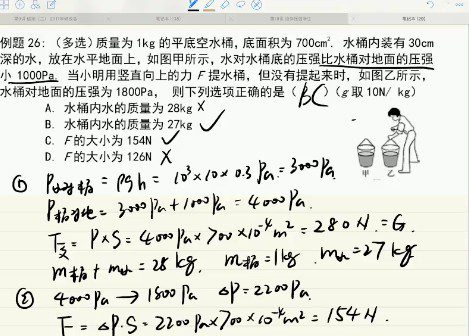 例题 26：（多选）质量为 1kg 的平底空水桶，底面积为 700cm². 水桶内装有 30cm
深的水，放在水平地面上，如图甲所示，水对水桶底的压强比水桶对地面的压强
小 1000Pa. 当小明用竖直向上的力 F 提水桶，但没有提起来时，如图乙所示，
水桶对地面的压强为 1800Pa， 则下列选项正确的是（ BC ）(g 取 10N/ kg)
A. 水桶内水的质量为 28kg ×
B. 水桶内水的质量为 27kg ✓
C. F 的大小为 154N ✓
D. F 的大小为 126N ×
甲 乙
① P水对桶 = ρgh = 10³×10×0.3 Pa = 3000Pa
P桶对地 = 3000Pa + 1000Pa = 4000Pa.
F支 = P×S = 4000Pa×700×10⁻⁴m² = 280N = G.
m桶 + m水 = 28kg. m桶 = 1kg. m水 = 27kg
② 4000Pa → 1800Pa ΔP = 2200Pa.
F = ΔP·S = 2200Pa×700×10⁻⁴m² = 154N.